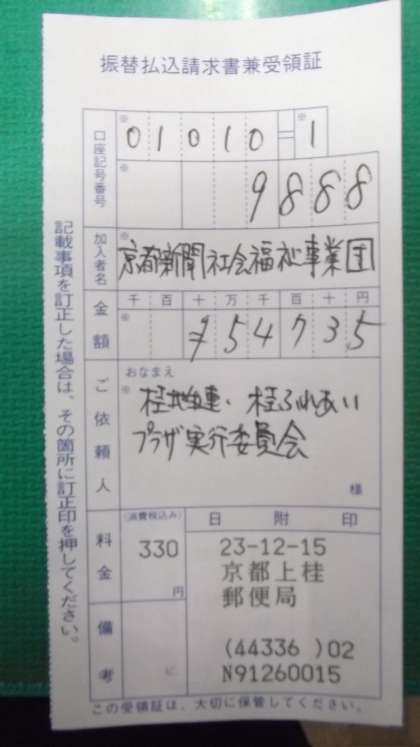 振替払込請求書兼受領証
口座記号番号
※ 01010=※1
※ 9888
加入者名
※ 京都新聞社会福祉事業団
金額
千 百 十 万 千 百 十 円
※ ¥54735
ご依頼人
おなまえ
※ 桂地生連・桂ふれあい
プラザ実行委員会
様
料金
(消費税込み)
330
円
日附印
23-12-15
京都上桂
郵便局
(44336 )02
N91260015
備考
この受領証は、大切に保管してください。
記載事項を訂正した場合は、その箇所に訂正印を押してください。